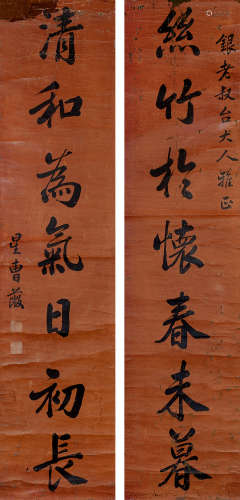 銀老叔台大人雅正
絲竹於懷春未暮
清和為氣日初長
星曹葰